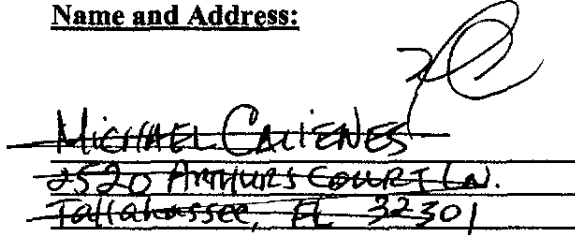 Name and Address:
MICHAEL CALIENES
2520 ARTHURS COURT LN.
Tallahassee, FL 32301